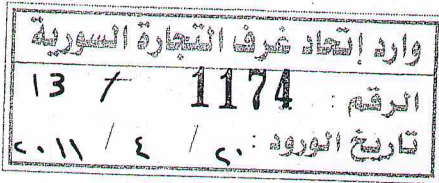 وارد إتحاد غرف التجارة السورية
الرقم : 1174 / 13
تاريخ الورود : ٢٠ / ٤ / ٢٠١١